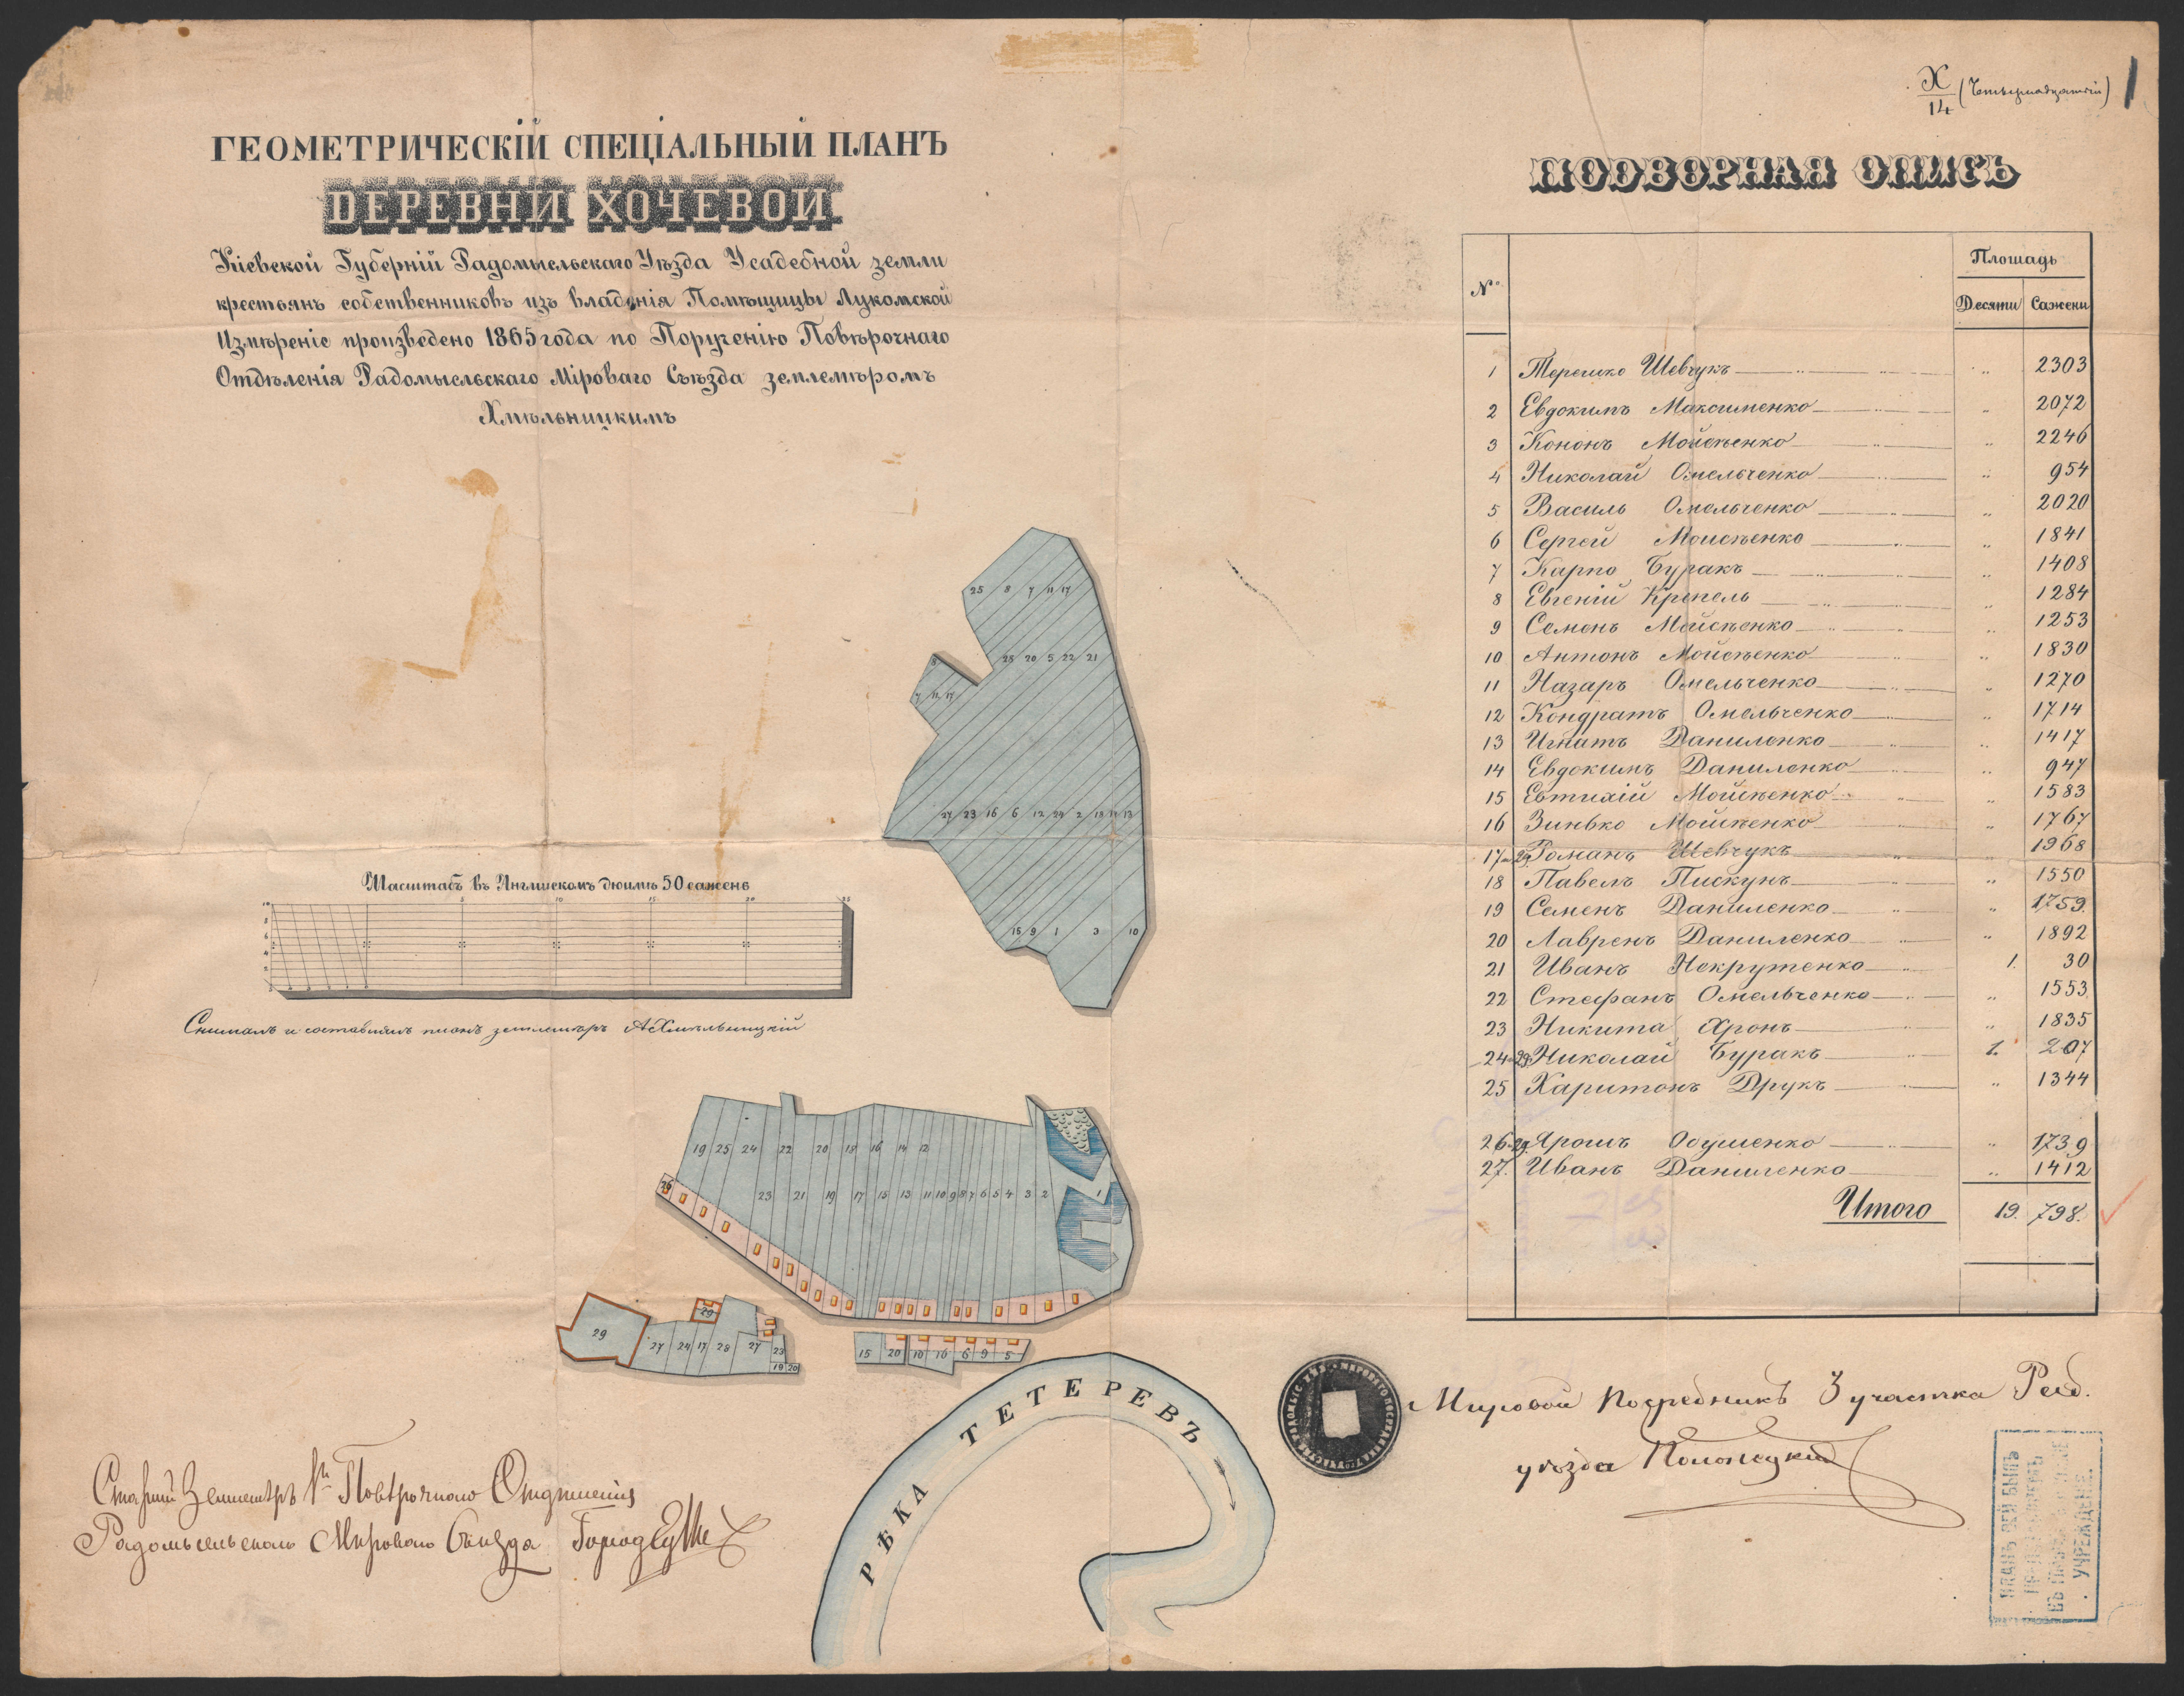 Х/14 (Четырнадцатый) 1
ГЕОМЕТРИЧЕСКІЙ СПЕЦІАЛЬНЫЙ ПЛАНЪ
ДЕРЕВНИ ХОЧЕВОЙ
Кіевской Губерній Радомысльскаго Уѣзда Усадебной земли
крестьянъ собственниковъ изъ владѣнія Помѣщицы Лукомской
Измѣреніе произведено 1865 года по Порученію Повѣрочнаго
Отдѣленія Радомысльскаго Міроваго Съѣзда землемѣромъ
Хмѣльницкимъ
25 8 7 11 17
25 20 5 22 21
8
7 11 17
27 23 16 6 12 24 2 18 14 13
15 9 1 3 10
Масштабъ въ Англискомъ дюймѣ 50 сажень
10 5 10 15 20 25
Снималъ и составлялъ планъ землемѣръ АХмѣльницкій
19 25 24 22 20 18 16 14 12
26 23 21 19 17 15 13 11 10 9 8 7 6 5 4 3 2 1
29 29
27 24 17 28 27 23
19 20
15 20 10 16 6 9 5
РѢКА ТЕТЕРЕВЪ
Старшій Землемѣръ Повѣрочнаго Отдѣленія
Радомысльскаго Мироваго Съѣзда
ПОДВОРНАЯ ОПИСЬ
№ Площадь
Десяти Сажени
1 Терешко Шевчукъ " 2303
2 Евдокимъ Максименко " 2072
3 Кононъ Мойсѣенко " 2246
4 Николай Омельченко " 954
5 Василь Омельченко " 2020
6 Сергей Моисѣенко " 1841
7 Карпо Буракъ " 1408
8 Евгеній Крепель " 1284
9 Семенъ Мойсѣенко " 1253
10 Антонъ Мойсѣенко " 1830
11 Назаръ Омельченко " 1270
12 Кондратъ Омельченко " 1714
13 Игнатъ Даниленко " 1417
14 Евдокимъ Даниленко " 947
15 Евтихій Мойсѣенко " 1583
16 Зинько Мойсѣенко " 1767
17 Романъ Шевчукъ " 1968
18 Павелъ Пискунъ " 1550
19 Семенъ Даниленко " 1759
20 Лавренъ Даниленко " 1892
21 Иванъ Некрутенко 1. 30
22 Стефанъ Омельченко " 1553
23 Никита Хронъ " 1835
24 29 Николай Буракъ 1. 207
25 Харитонъ Друкъ " 1344
26 29 Ярошъ " 1739
27. Иванъ Даниленко " 1412
Итого 19. 798.
Мировой Посредникъ 3 участка Рад.
уѣзда
ПЛАНЪ СЕЙ БЫЛЪ
УЧРЕЖДЕНІЕ.